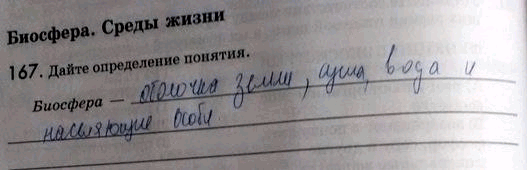 Биосфера. Среды жизни
167. Дайте определение понятия.
Биосфера — оболочка земли, суша, вода и
населяющие особи